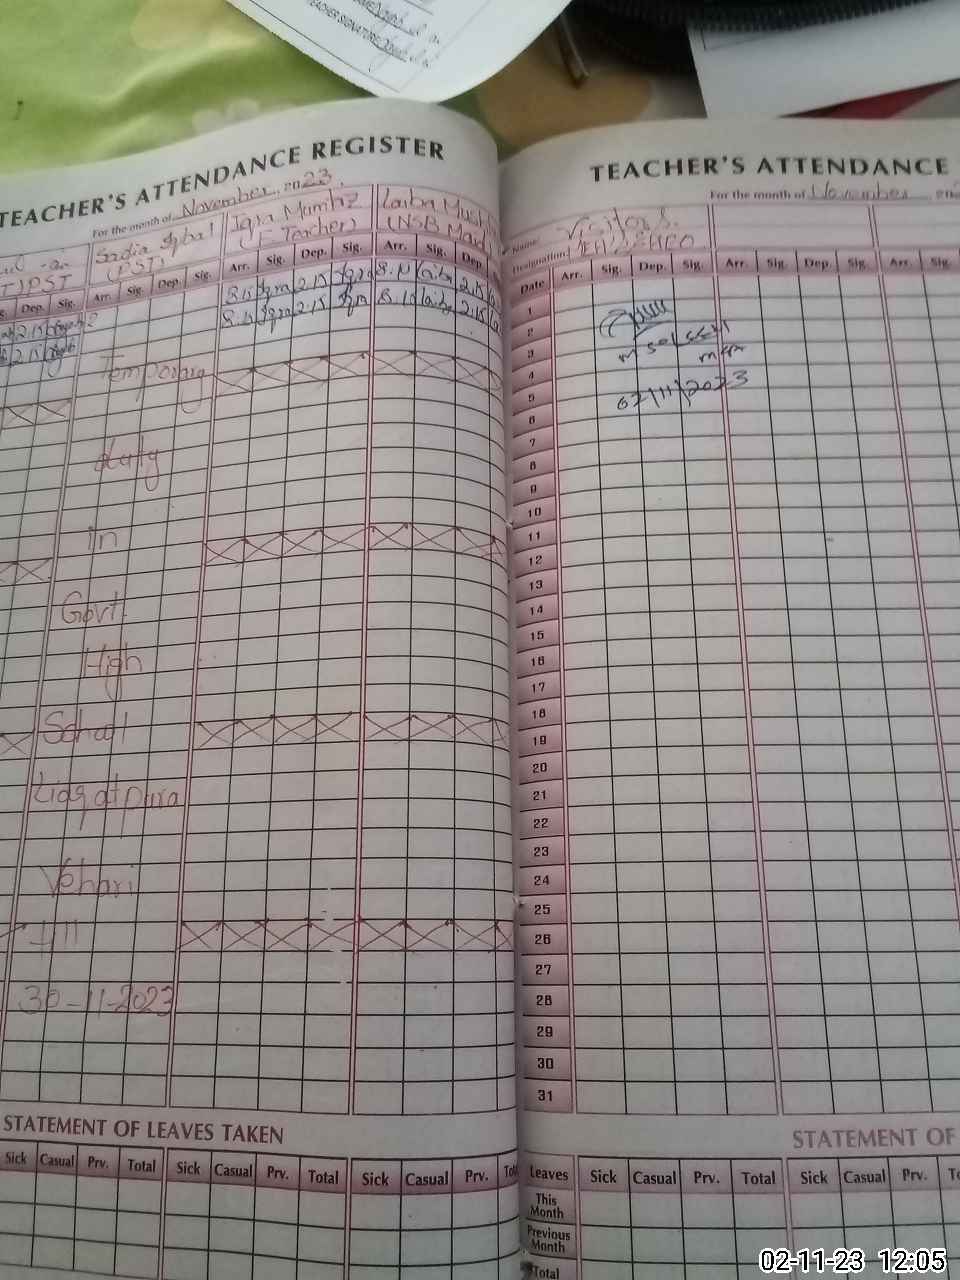 TEACHER SIGNATURE
TEACHER'S ATTENDANCE REGISTER
For the month of November 2023.
Sadia Iqbal
(PST)
Iqra Mumtaz
(E Teacher)
Laiba
(NSB Maid)
PST
Dep. Sig. Arr. Sig. Dep. Sig. Arr. Sig. Dep. Sig. Arr. Sig. Dep.
2.15
8.15 Iqra 2.15 Iqra 8.10 Laiba 2.15
2.15
8.15 Iqra 2.15 Iqra 8.10 Laiba 2.15
Temporary
duty
in
Govt.
High
School
Liaqatpura
Vehari
till
30-11-2023
STATEMENT OF LEAVES TAKEN
Sick Casual Prv. Total Sick Casual Prv. Total Sick Casual Prv.
TEACHER'S ATTENDANCE
For the month of November
Name: Visitors.
Designation:
Date Arr. Sig. Dep. Sig. Arr. Sig. Dep. Sig. Arr.
1
2
3
4
5
02/11/2023
6
7
8
9
10
11
12
13
14
15
16
17
18
19
20
21
22
23
24
25
26
27
28
29
30
31
STATEMENT OF
Leaves Sick Casual Prv. Total Sick Casual Prv.
This Month
Previous Month
Total
02-11-23 12:05